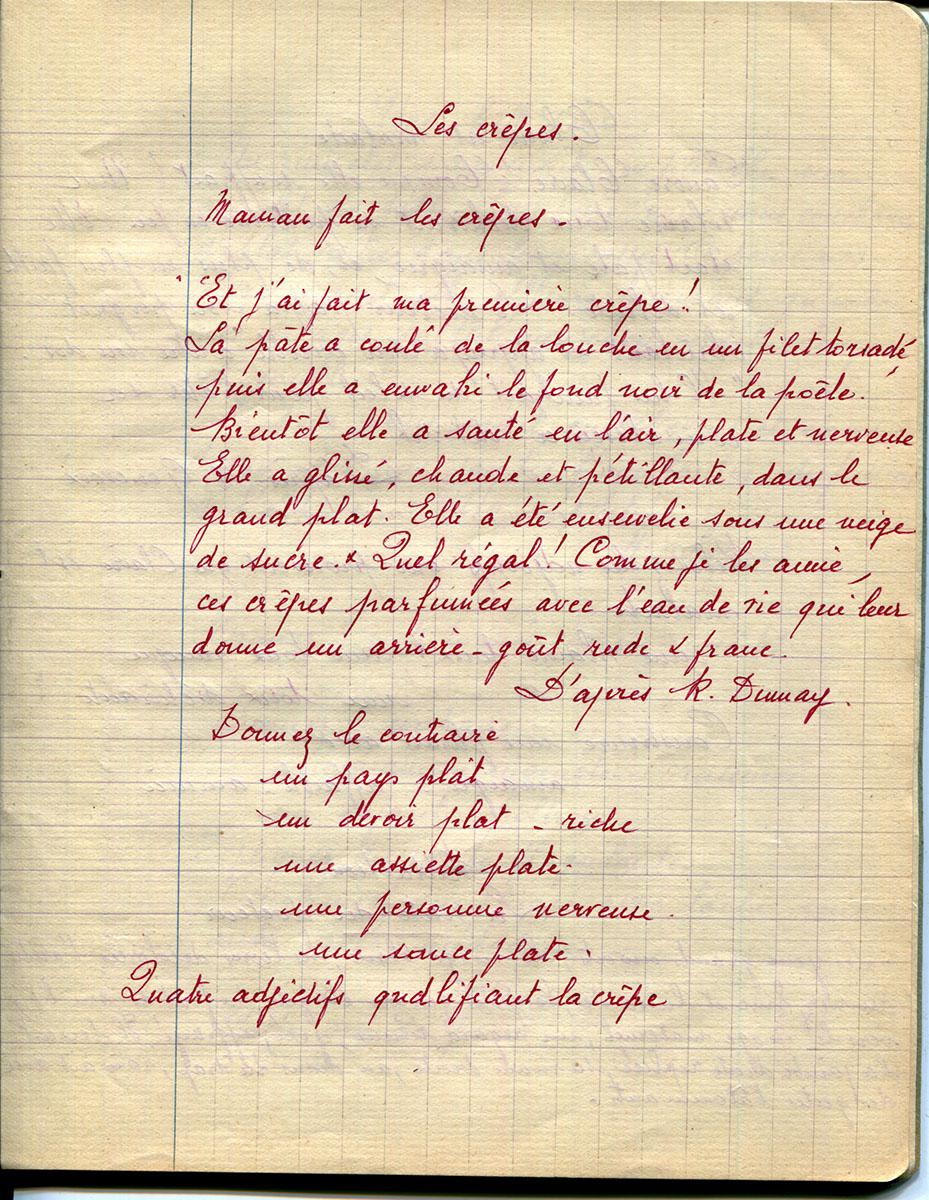 Les crêpes.
Maman fait les crêpes.
"Et j'ai fait ma première crêpe!
La pâte a coulé de la louche en un filet torsadé,
puis elle a envahi le fond noir de la poêle.
Bientôt elle a sauté en l'air, plate et nerveuse
Elle a glissé, chaude et pétillante, dans le
grand plat. Elle a été ensevelie sous une neige
de sucre. x Quel régal! Comme je les aime,
ces crêpes parfumées avec l'eau de vie qui leur
donne un arrière-goût rude & franc.
D'après R. Dumay.
Donnez le contraire
un pays plat
un devoir plat - riche
une assiette plate.
une personne nerveuse.
une sauce plate.
Quatre adjectifs qualifiant la crêpe